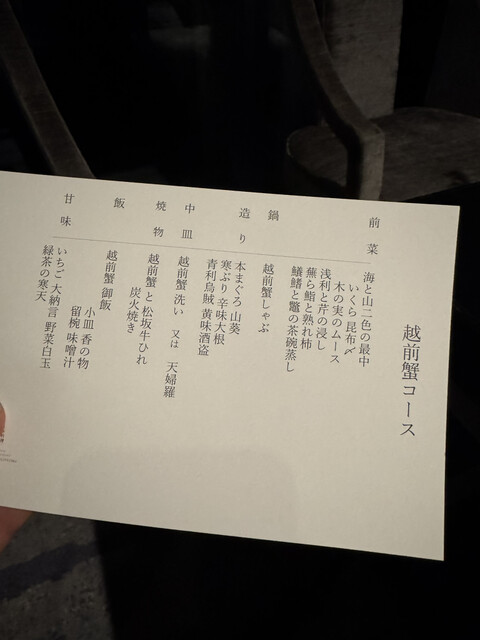 越前蟹コース
前菜
海と山二色の最中
いくら 昆布〆
木の実のムース
浅利と芹の浸し
蕪ら鮨と熟れ柿
鱶鰭と鼈の茶碗蒸し
鍋
越前蟹しゃぶ
造り
本まぐろ 山葵
寒ぶり 辛味大根
青利烏賊 黄味酒盗
中皿
越前蟹 洗い 又は 天婦羅
焼物
越前蟹 と 松坂牛ひれ
炭火焼き
飯
越前蟹 御飯
小皿 香の物
留椀 味噌汁
甘味
いちご 大納言 野菜白玉
緑茶の寒天